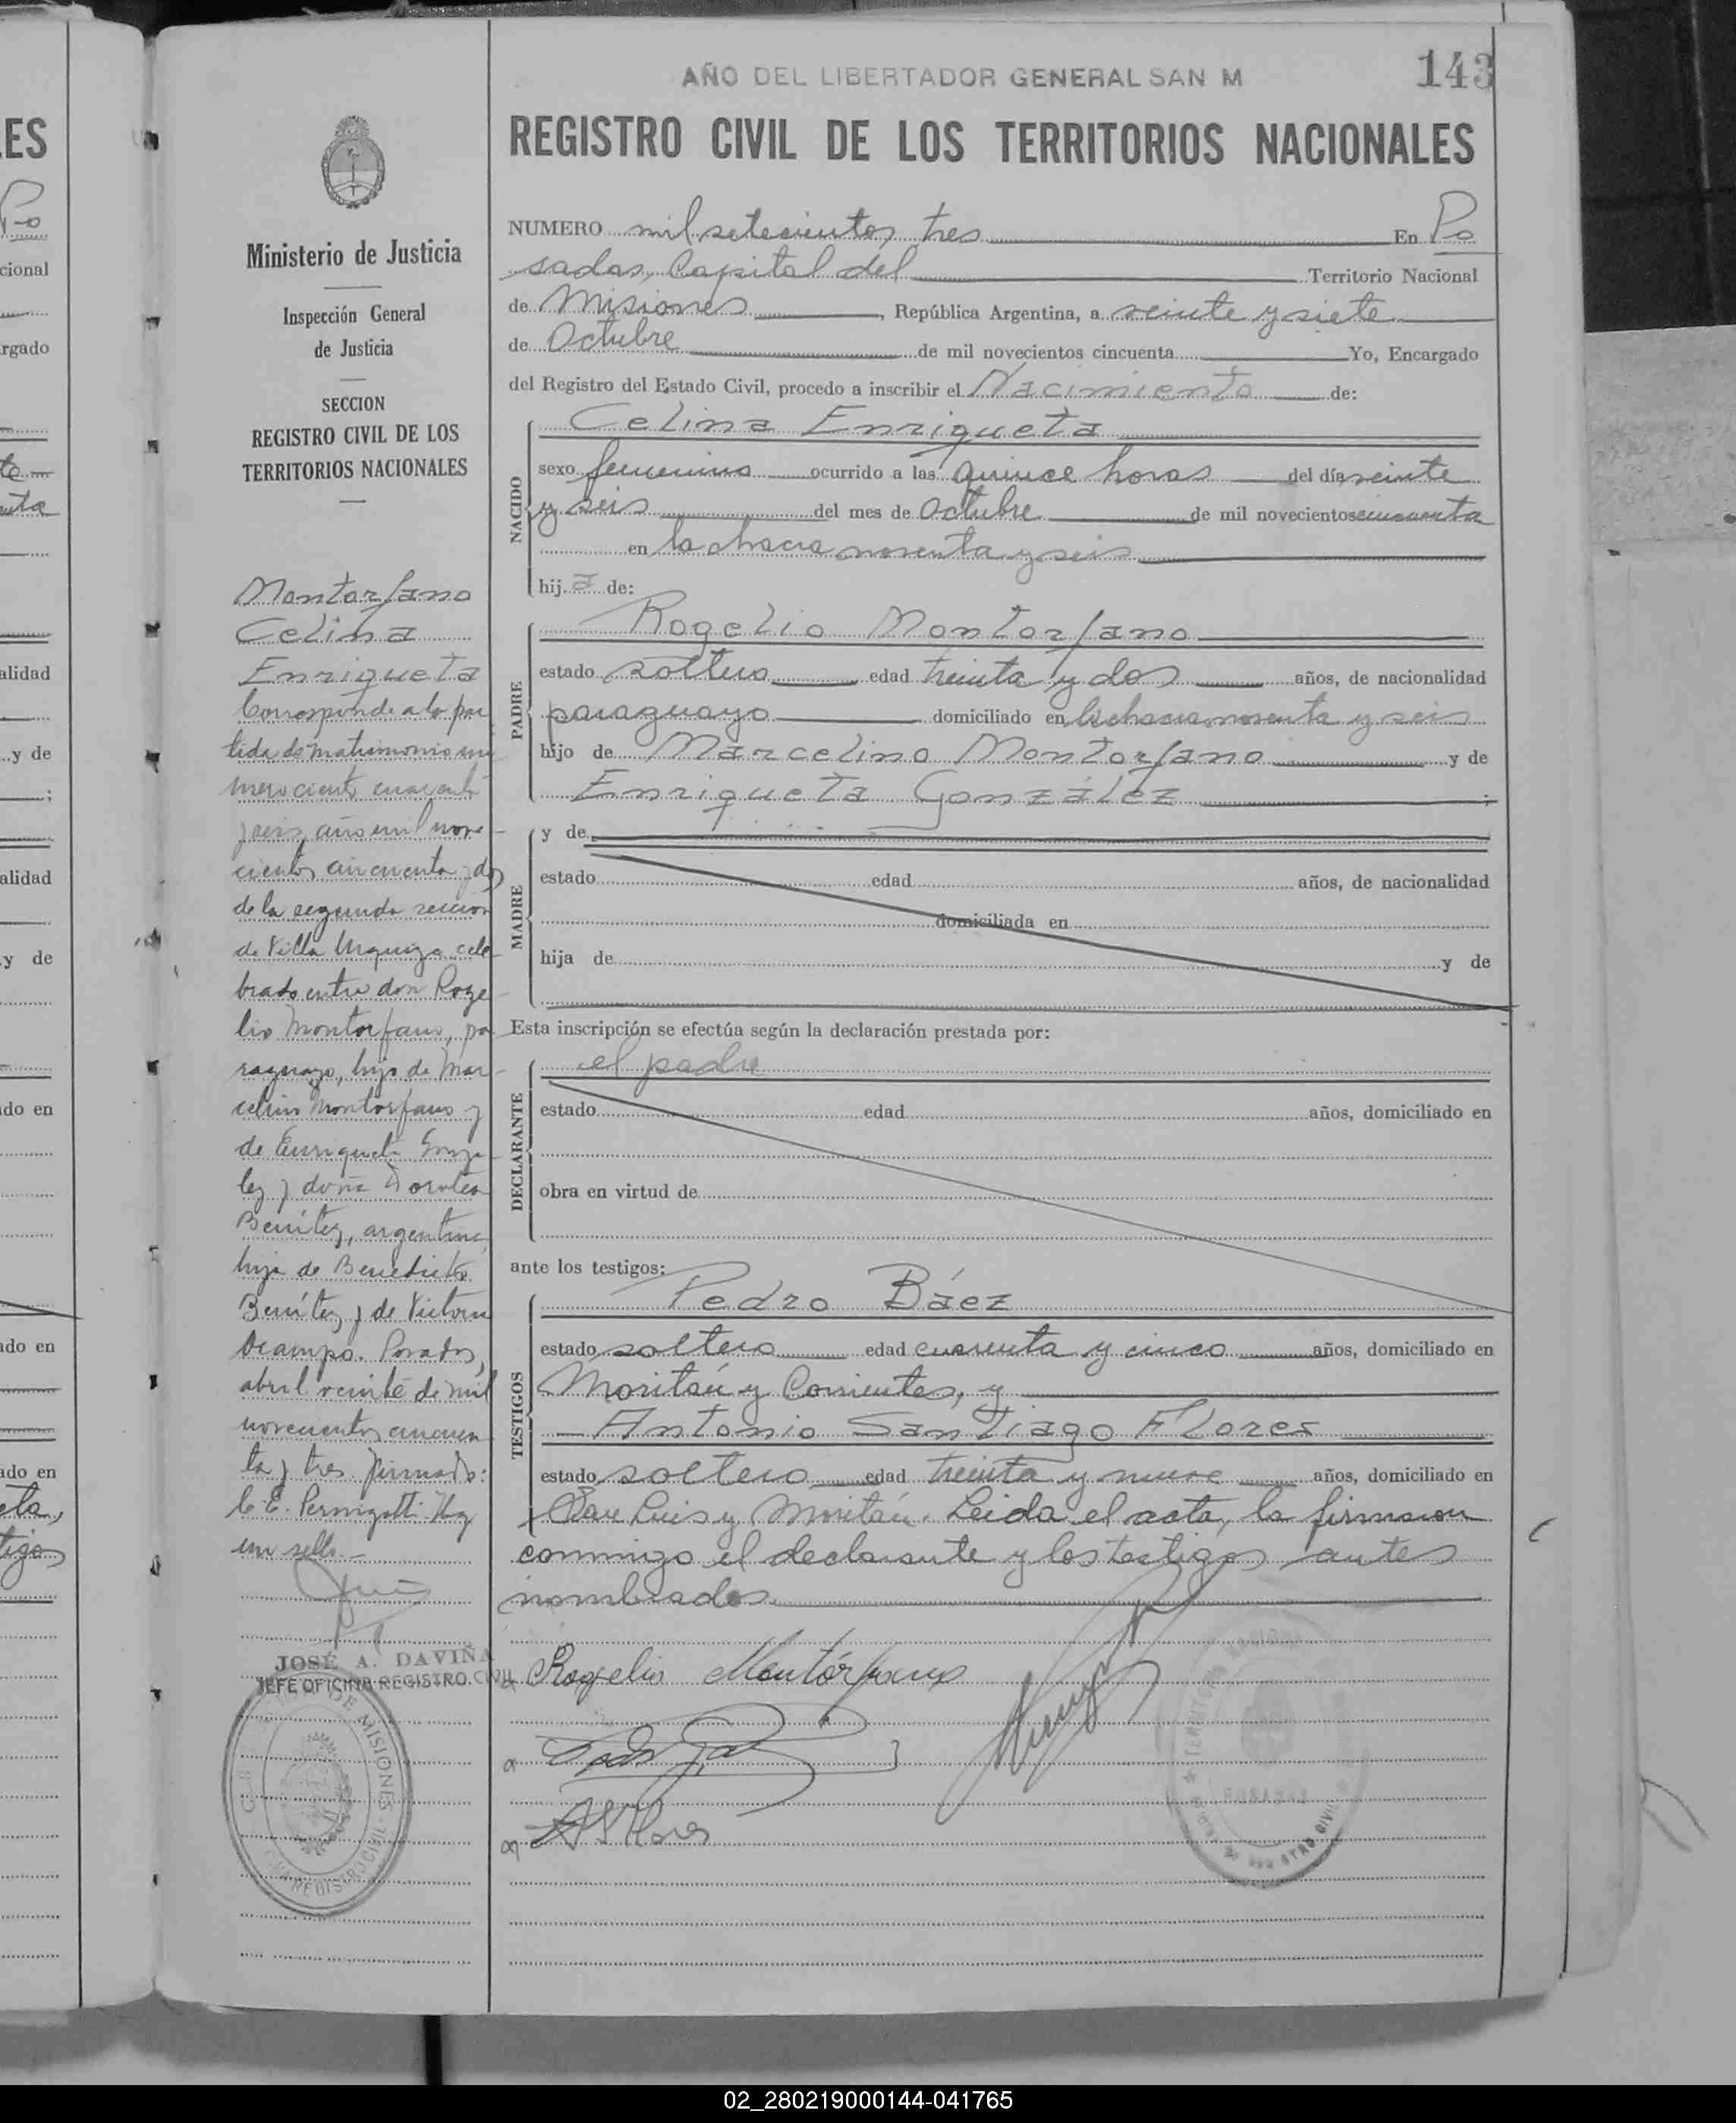 AÑO DEL LIBERTADOR GENERAL SAN M
143
REGISTRO CIVIL DE LOS TERRITORIOS NACIONALES
Ministerio de Justicia
Inspección General
de Justicia
SECCION
REGISTRO CIVIL DE LOS
TERRITORIOS NACIONALES
Montorfano
Celina
Enriqueta
Corresponde a la par
tida de matrimonio nu
mero ciento cuarenta
y seis, año mil nove
cientos cincuenta y dos
de la segunda seccion
de Villa Urquiza cele
brado entre don Roge
lio Montorfano, pa
raguayo, hijo de Mar
celino Montorfano y
de Enriqueta Gonza
lez y doña Dorotea
Benítez, argentina,
hija de Benedicto
Benítez y de Victoria
Ocampo. Posadas,
abril veinte de mil
novecientos cincuen
ta y tres firmado:
C. E. Pernigotti Hay
un sello.-
JOSÉ A. DAVIÑA
JEFE OFICINA REGISTRO CIVIL
NUMERO mil setecientos tres En Po
sadas, Capital del Territorio Nacional
de Misiones, República Argentina, a veinte y siete
de Octubre de mil novecientos cincuenta Yo, Encargado
del Registro del Estado Civil, procedo a inscribir el Nacimiento de:
NACIDO
Celina Enriqueta
sexo femenino ocurrido a las quince horas del día veinte
y seis del mes de Octubre de mil novecientos cincuenta
en la chacra noventa y seis
hija de:
PADRE
Rogelio Montorfano
estado soltero edad treinta y dos años, de nacionalidad
paraguayo domiciliado en la chacra noventa y seis
hijo de Marcelino Montorfano y de
Enriqueta González ;
MADRE
y de
estado edad años, de nacionalidad
domiciliada en
hija de y de
Esta inscripción se efectúa según la declaración prestada por:
DECLARANTE
el padre
estado edad años, domiciliado en
obra en virtud de
ante los testigos:
TESTIGOS
Pedro Báez
estado soltero edad cuarenta y cinco años, domiciliado en
Moritán y Corrientes, y
Antonio Santiago Flores
estado soltero edad treinta y nueve años, domiciliado en
San Luis y Moritán. Leida el acta, la firmaron
conmigo el declarante y los testigos antes
nombrados.
Rogelio Montórfano
A S Flores
02_280219000144-041765